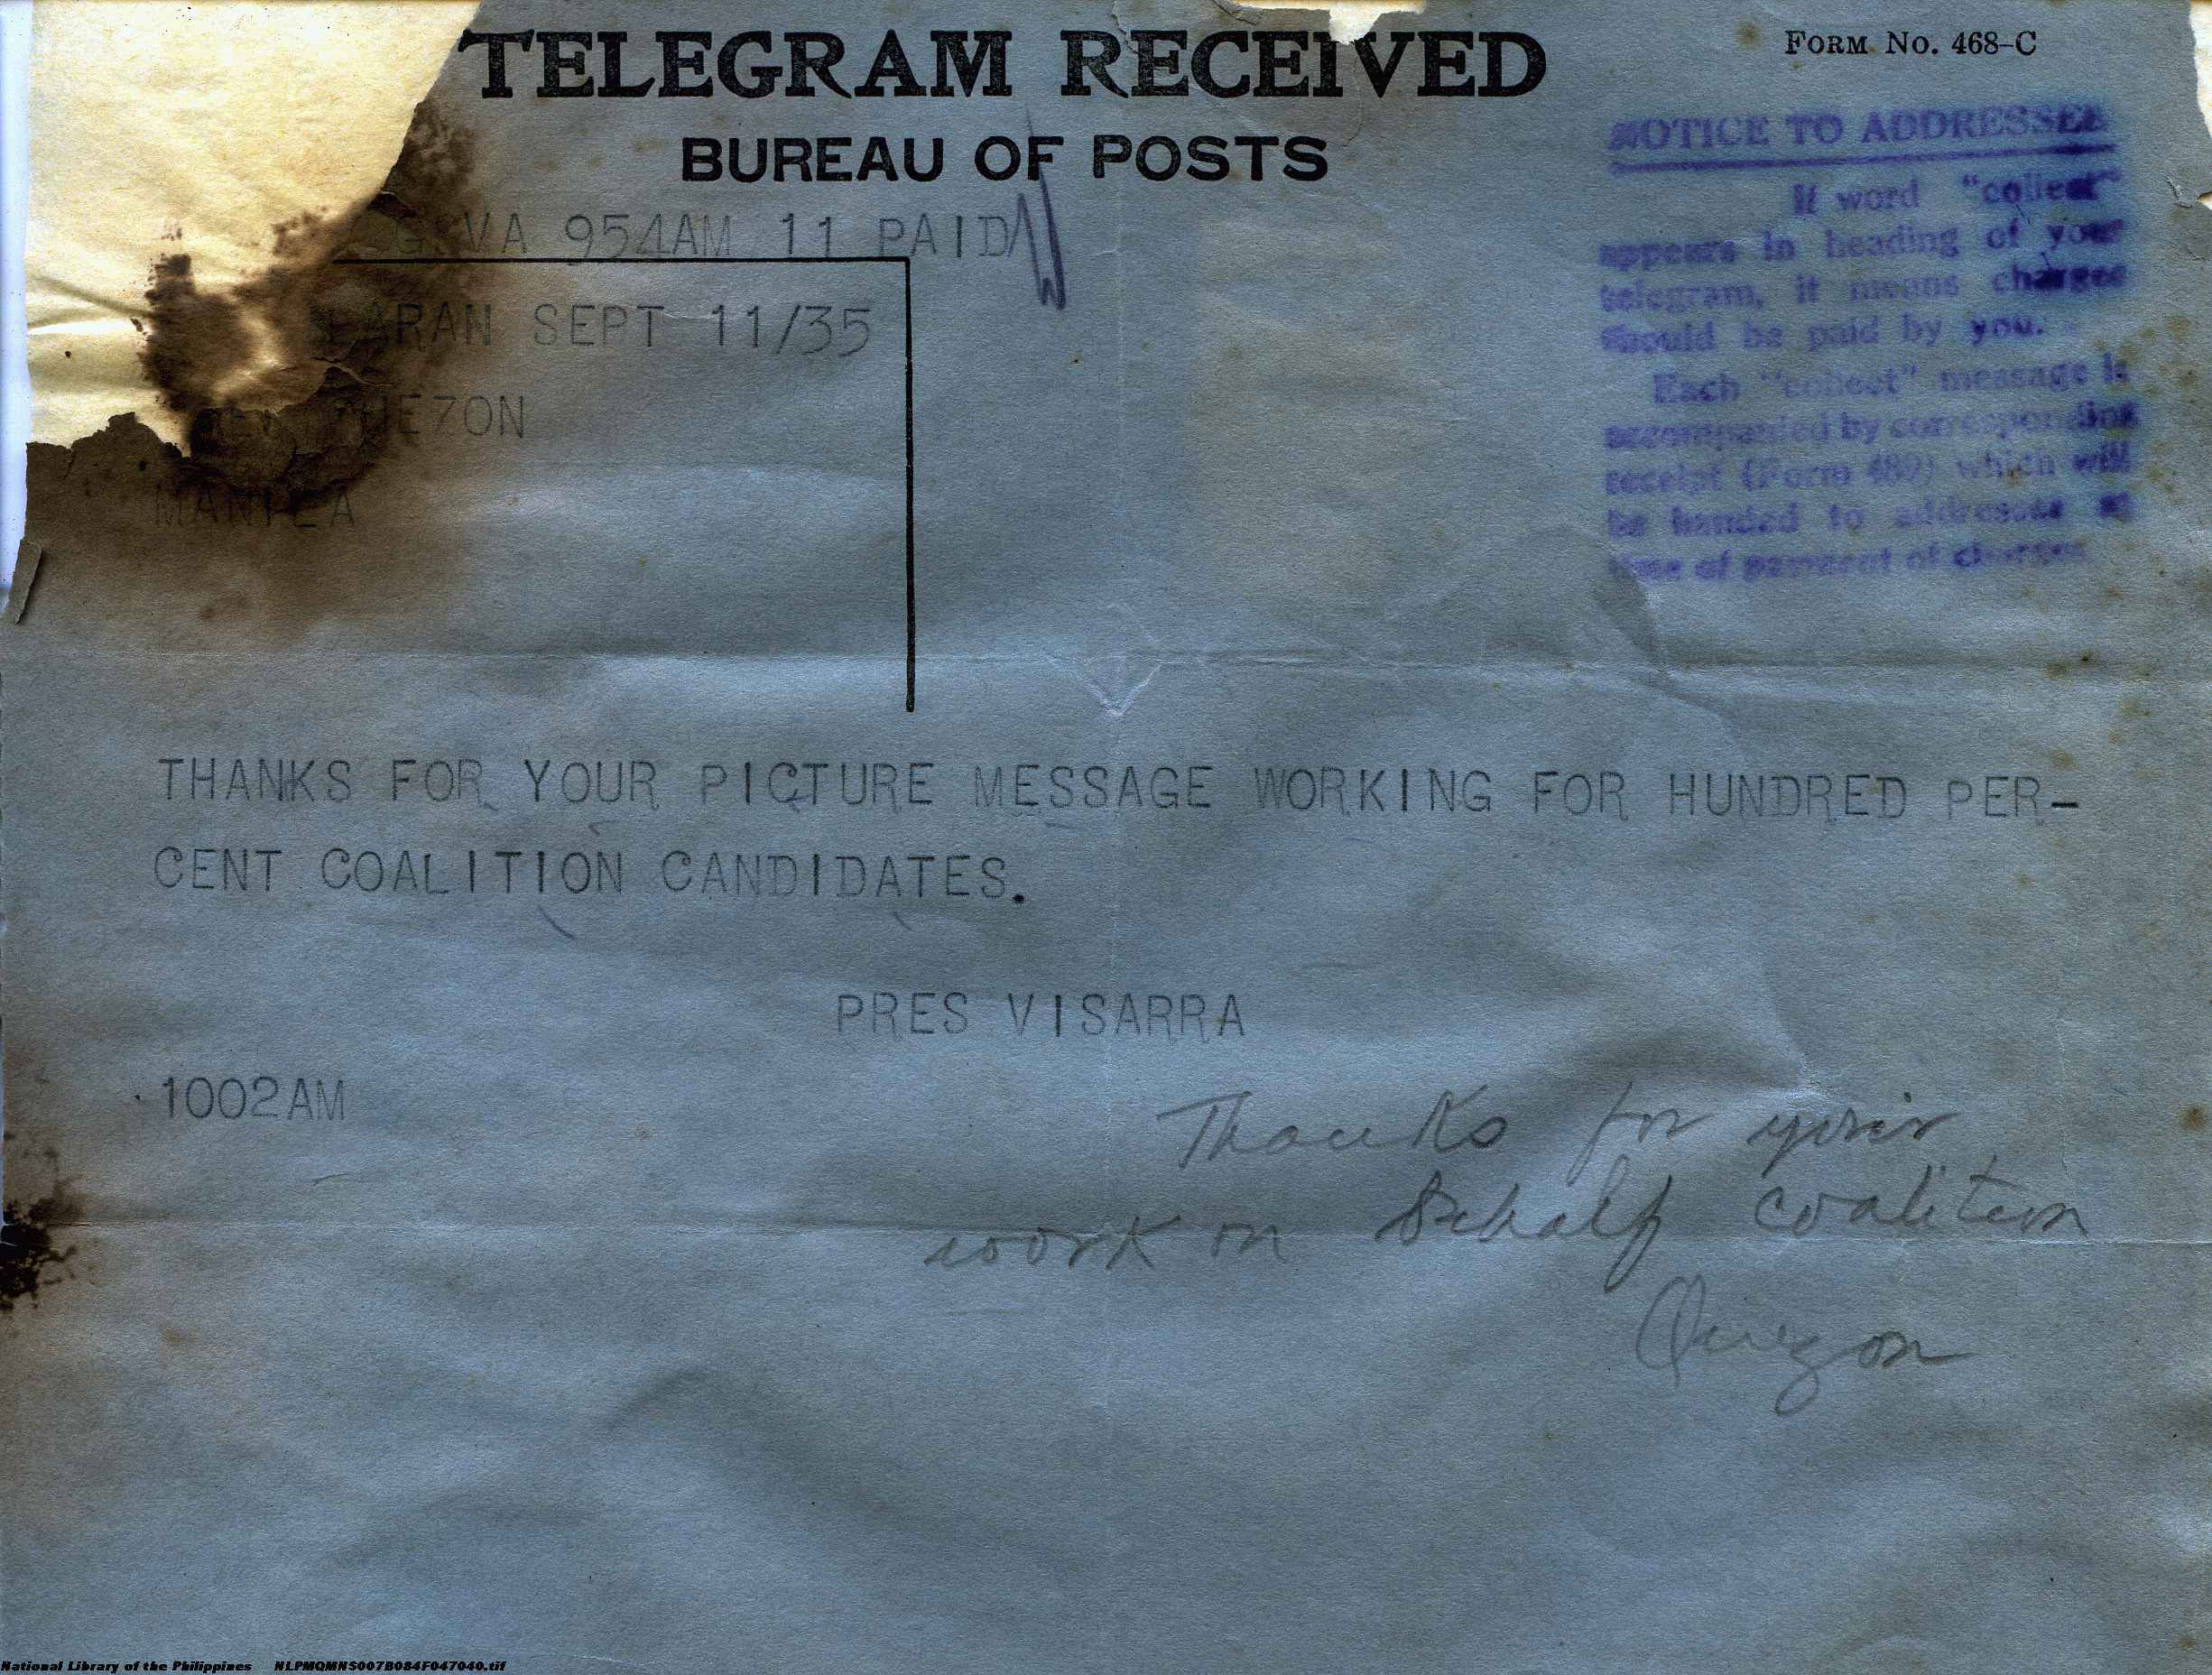 TELEGRAM RECEIVED
FORM NO. 468-C
BUREAU OF POSTS
NOTICE TO ADDRESSEE
If word "collect"
appears in heading of your
telegram, it means charges
should be paid by you.
Each "collect" message is
accompanied by corresponding
receipt (Form 489) which will
be handed to addressee at
time of payment of charges
VA 954AM 11 PAID
LARAN SEPT 11/35
UEZON
MANILA
THANKS FOR YOUR PICTURE MESSAGE WORKING FOR HUNDRED PER-
CENT COALITION CANDIDATES.
PRES VISARRA
1002AM
Thanks for your
work on behalf coalition
Quezon
National Library of the Philippines NLPMQMNS007B084F047040.tif